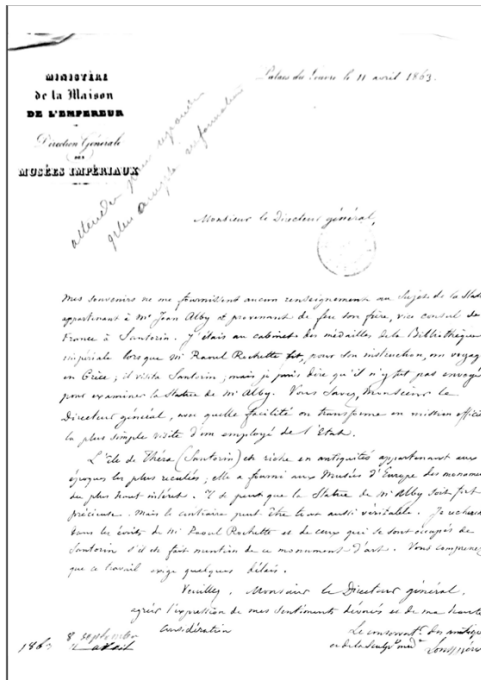 Palais du Louvre le 11 avril 1863.
MINISTÈRE
de la Maison
DE L'EMPEREUR
Direction Générale
DES
MUSÉES IMPÉRIAUX
attendre pour répondre
plus ample information
Monsieur le Directeur général,
Mes souvenirs ne me fournissent aucun renseignement au sujet de la Statue
appartenant à Mr Jean Alby et provenant de feu son frère, vice consul de
France à Santorin. J'étais au cabinet des médailles de la Bibliothèque
impériale lorsque Mr Raoul Rochette fit, pour son instruction, un voyage
en Grèce; il visita Santorin, mais je puis dire qu'il n'y fut pas envoyé
pour examiner la Statue de Mr Alby. Vous savez, Monsieur le
Directeur général, avec quelle facilité on transforme en mission officielle
la plus simple visite d'un employé de l'Etat.
L'île de Théra (Santorin) est riche en antiquités appartenant aux
époques les plus reculées; elle a fourni aux Musées d'Europe des monuments
du plus haut intérêt. Il se peut que la Statue de Mr Alby soit fort
précieuse. Mais le contraire peut être tout aussi véritable. Je rechercherai
dans les écrits de Mr Raoul Rochette et de ceux qui se sont occupés de
Santorin s'il est fait mention de ce monument d'art. Vous comprenez
que ce travail exige quelques délais.
Veuillez, Monsieur le Directeur général,
agréer l'expression de mes sentiments dévoués et de ma haute
considération
Le conservateur des antiques
et de la sculpture mod.
8 septembre
1863